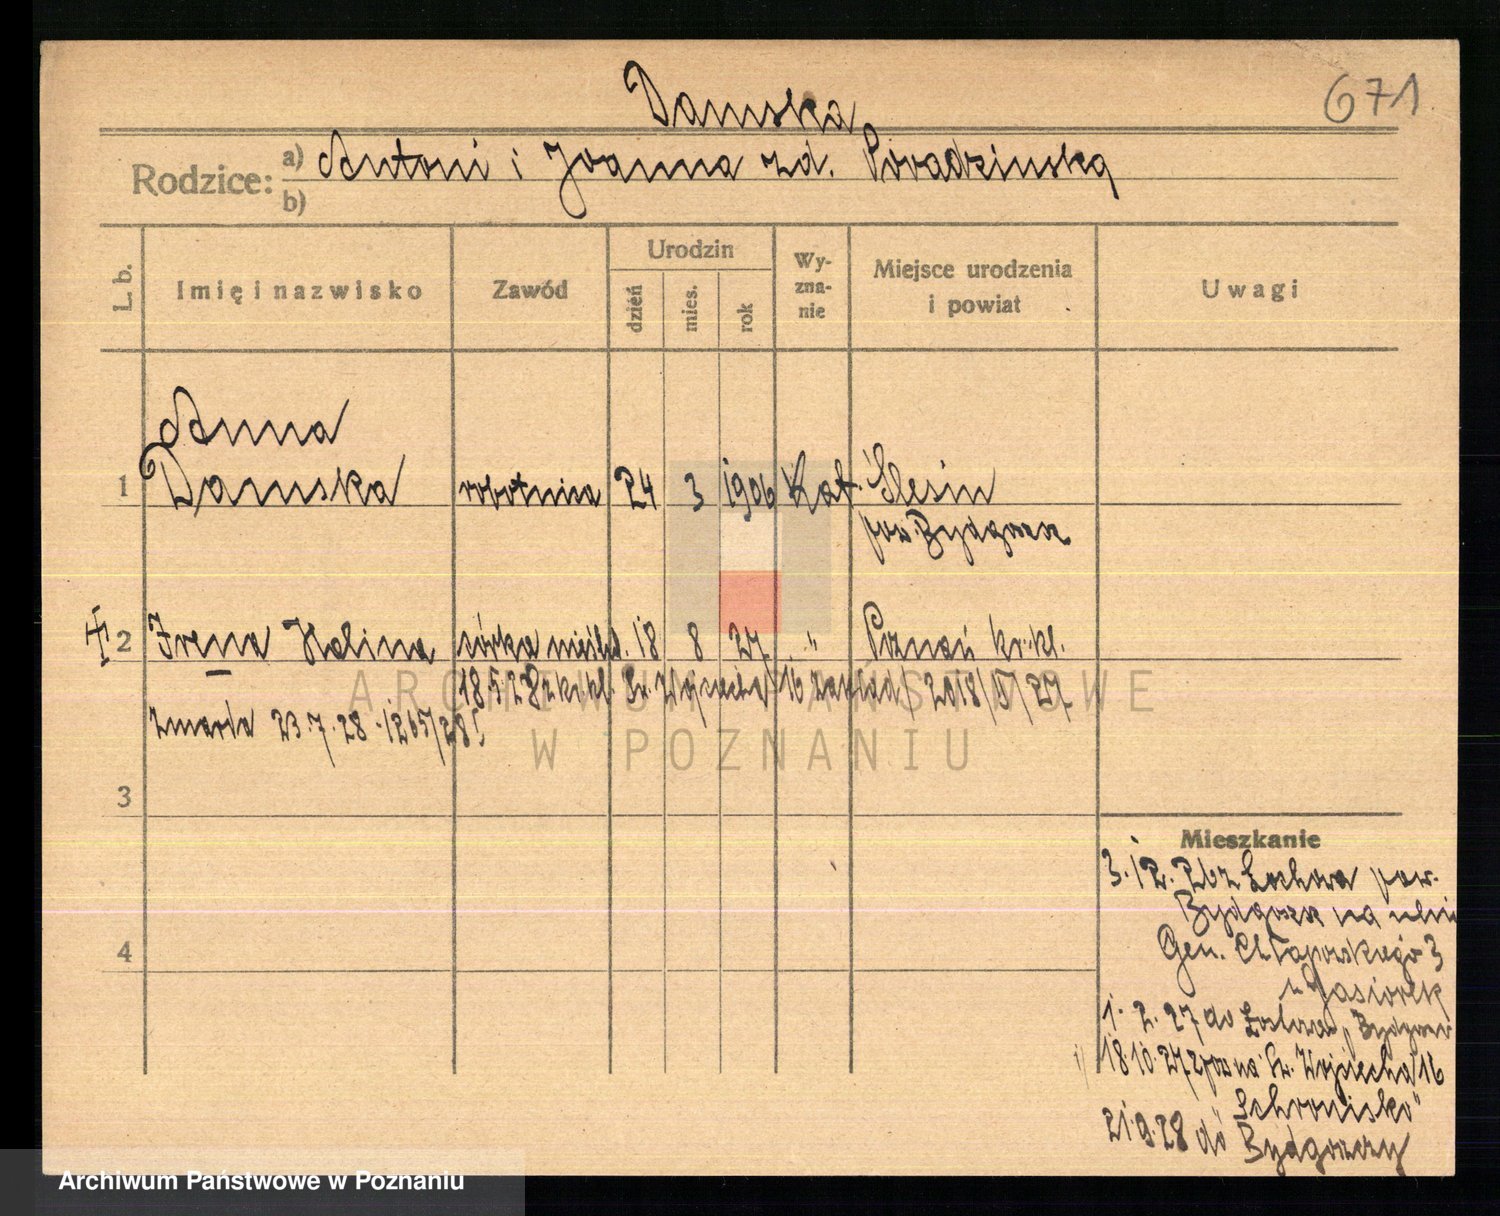 671
Damska
Rodzice: a) Antoni i Joanna zd. Poradzinska
b)
L. b.
Imię i nazwisko
Zawód
Urodzin
dzień
mies.
rok
Wy-
zna-
nie
Miejsce urodzenia
i powiat
Uwagi
Anna
1 Damska robotnica 24 3 1906 Kat. Ślesin
pow. Bydgoszcz
2 Irena Halina córka nieślub. 18 8 27 " Poznań kr. kl.
18.5.28 z kr. kl. Św. Wojciecha 16 zakład / 2018/V/27
zmarła 23.7.28 - 1265/28
3
4
Mieszkanie
3.12.26 z Łochowa pow.
Bydgoszcz na ulicę
Gen. Chłapowskiego 3
u Gąsiorek
1. 2. 27 do Łochowa, Bydgoszcz
18.10.27 z pow na Św. Wojciecha 16
"Schronisko"
21.9.28 do Bydgoszczy
ARCHIWUM PAŃSTWOWE
W POZNANIU
Archiwum Państwowe w Poznaniu